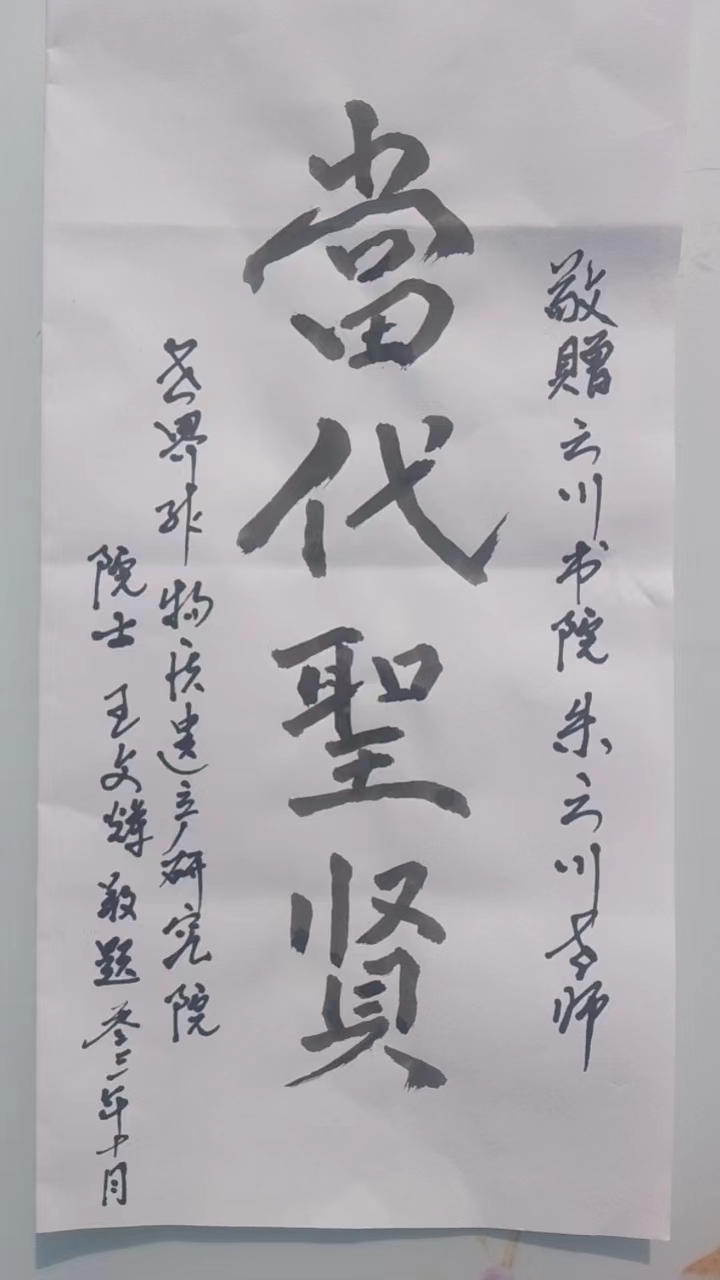 敬贈云川书院朱云川老师
當代聖贤
世界非物质遗产研究院
院士王文辉敬题叁二年十月